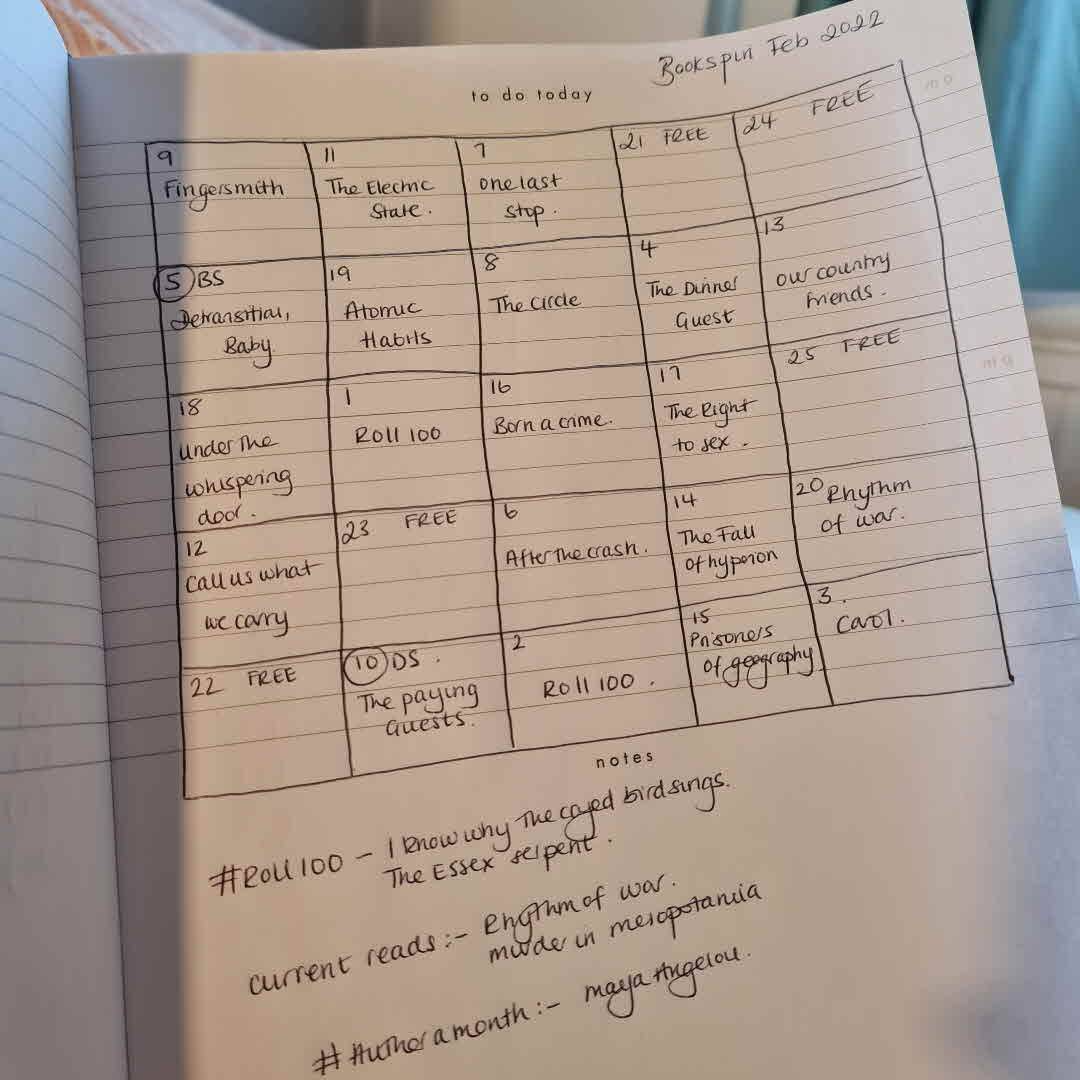 Bookspin Feb 2022
to do today
9 11 7 21 FREE 24 FREE
Fingersmith The Electric one last
State. stop.
5 BS 19 8 4 13
Detransition, Atomic The Circle The Dinner our country
Baby. Habits Guest friends.
18 1 16 17 25 FREE
under the Roll 100 Born a crime. The Right
whispering to sex.
door.
12 23 FREE 6 14 20 Rhythm
Call us what After the crash. The Fall of war.
we carry of hyperion
22 FREE 10 DS. 2 15 3.
The paying Roll 100. Prisoners Carol.
Guests. of geography
notes
#Roll 100 - I know why The caged bird sings.
The Essex serpent.
current reads:- Rhythm of war.
murder in mesopotamia
# Author a month:- maya Angelou.